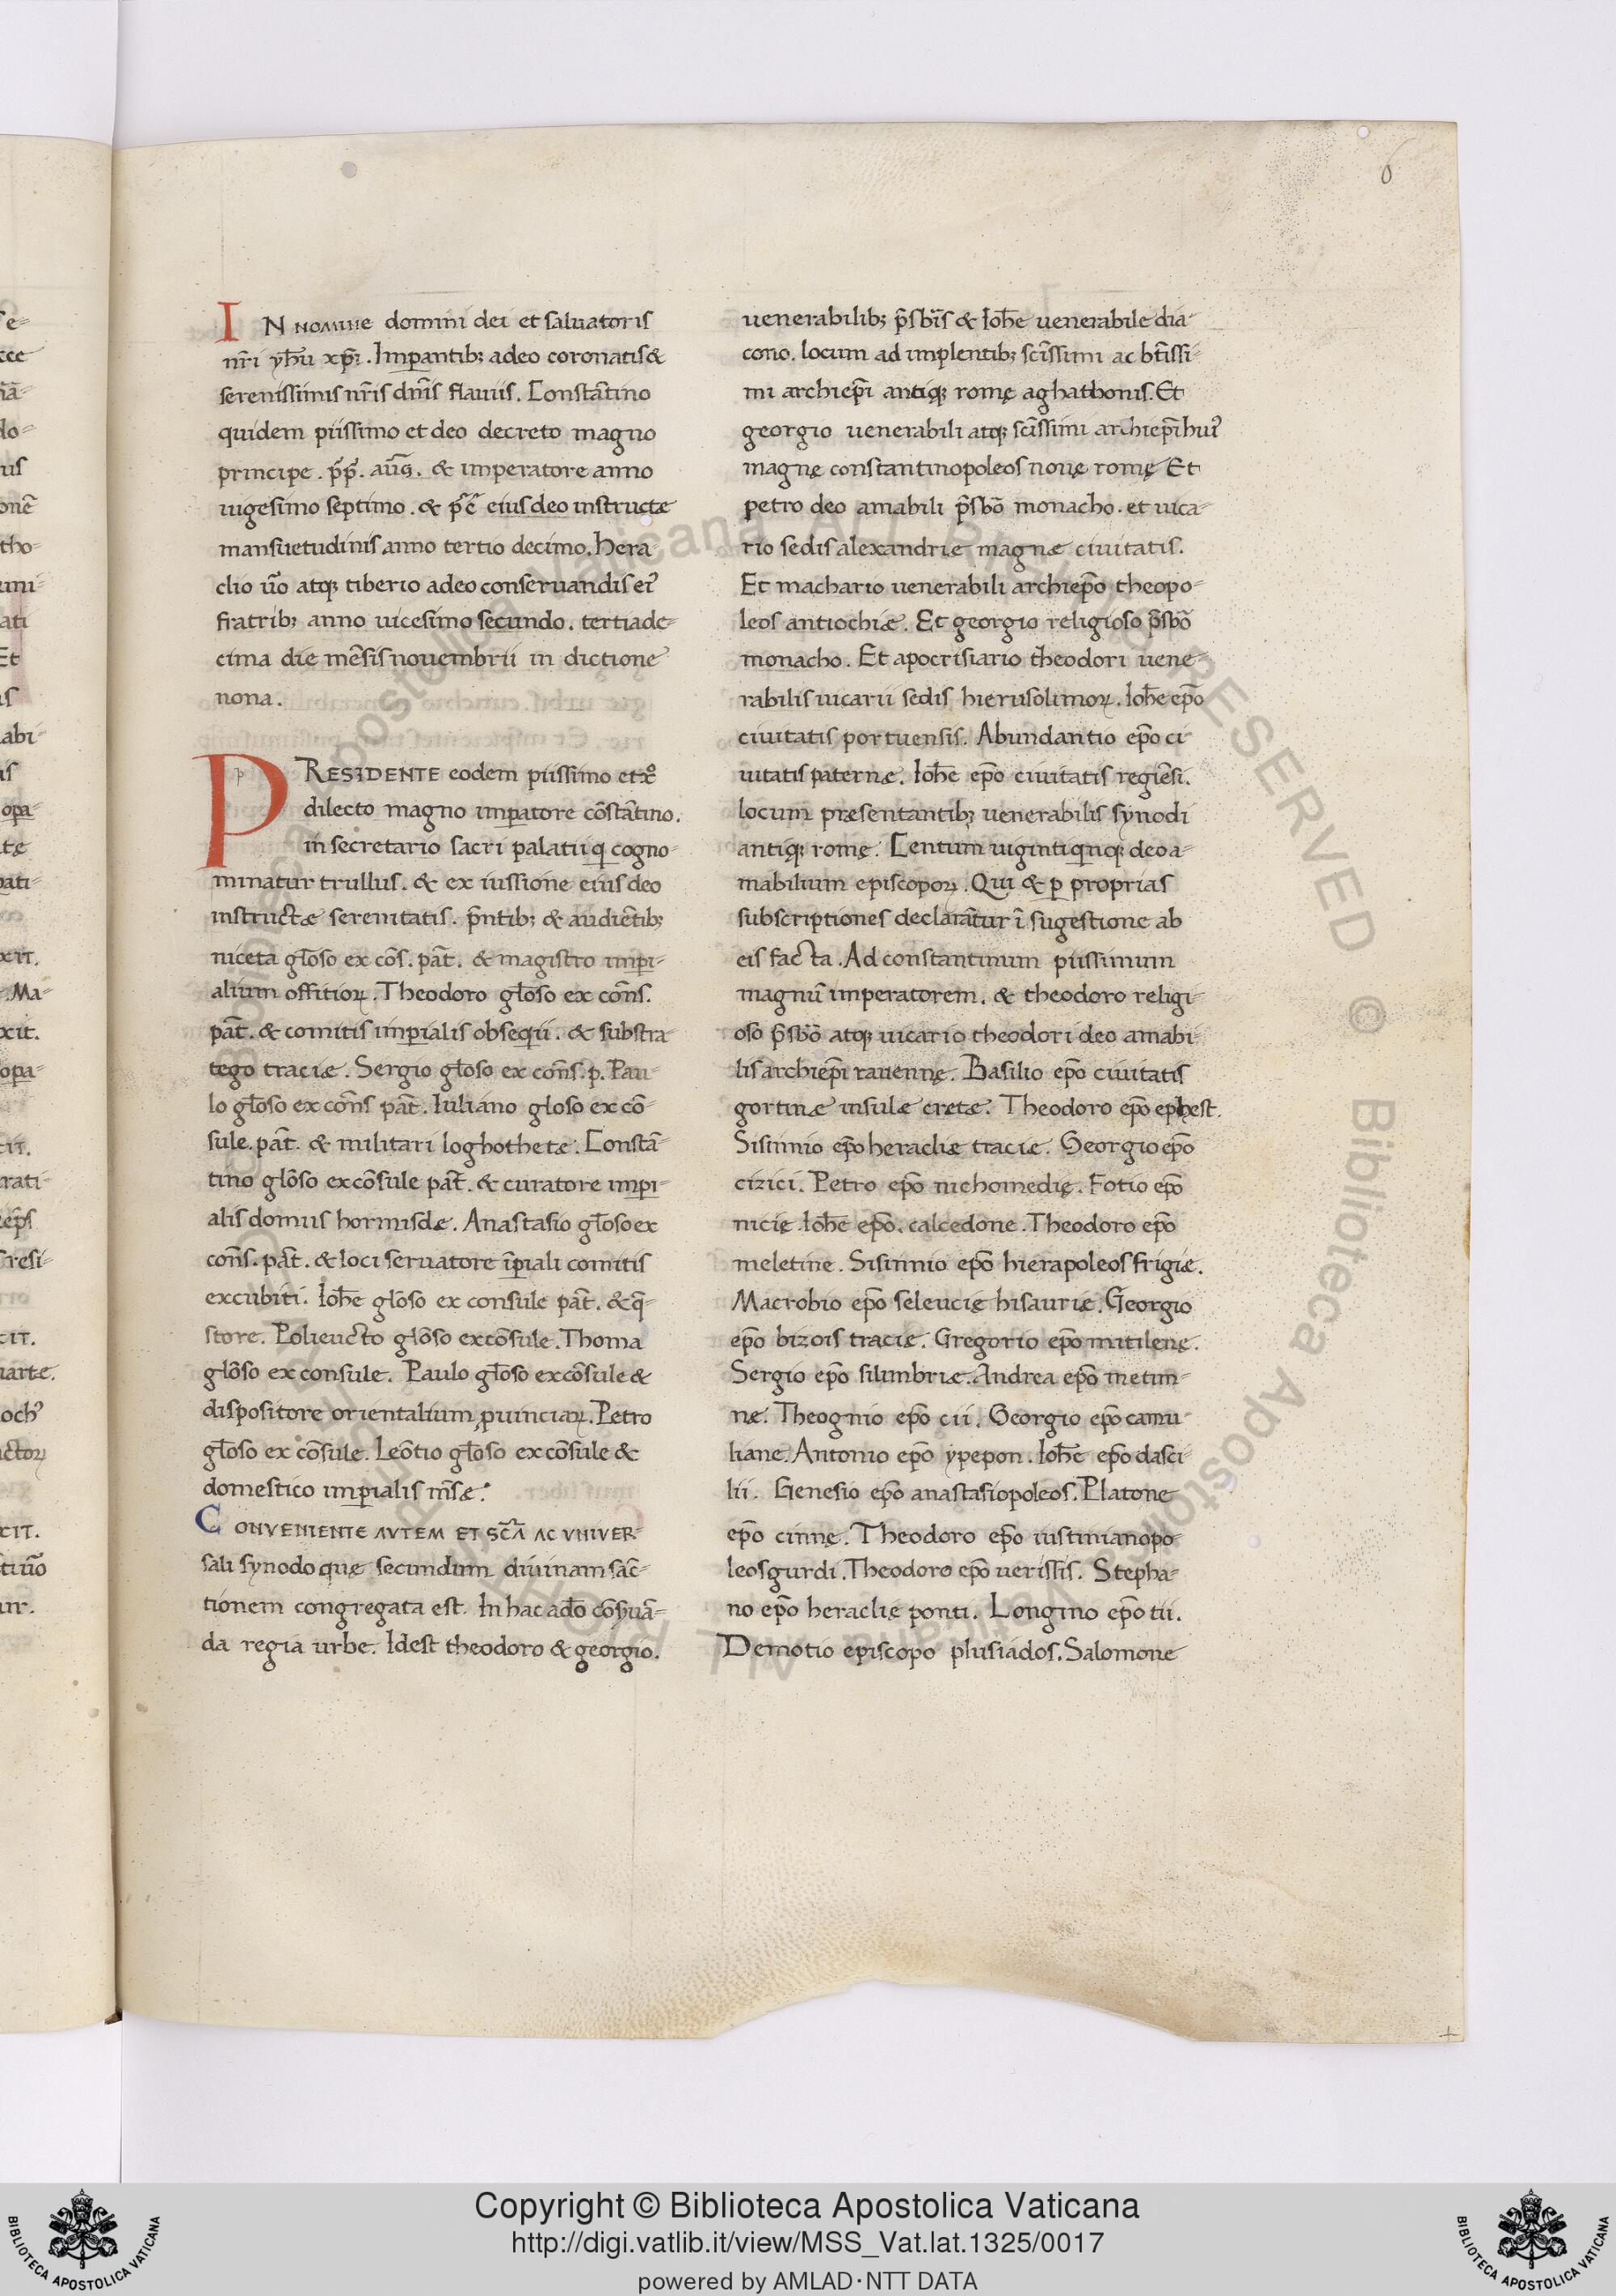 6
IN nomine domini dei et saluatoris
nr̄i yh̄u xp̄i. Imꝑantib; adeo coronatis &
serenissimis nr̄is dn̄is flauiis. Constātino
quidem piissimo et deo decreto magno
principe. p̄p̄. aūg. & imperatore anno
uigesimo septimo. & p̄c̄ eius deo instructæ
mansuetudinis anno tertio decimo. hera
clio ūo atqꝫ tiberio adeo conseruandis ei᾿
fratrib; anno uicesimo secundo. tertiade-
cima die mēsis nouembrii in dictione
nona.
PRESIDENTE eodem piissimo et xp̄o
dilecto magno imꝑatore cōstātino.
in secretario sacri palatii q̄ cogno-
minatur trullus. & ex iussione eius deo
instructæ serenitatis. p̄ntib; & audiētib;
niceta gl̄oso ex cōs. pāt. & magistro imꝑi-
alium offitioꝝ. Theodoro gl̄oso ex cōns.
pāt. & comitis imꝑialis obsequii. & substra
tego traciæ. Sergio gl̄oso ex cōns. p. Pau-
lo gl̄oso ex cōns pāt. Iuliano gloso ex cō-
sule. pāt. & militari loghothetæ. Constā-
tino glōso excōsule pāt. & curatore imꝑi-
alis domus hormisdæ. Anastasio gl̄oso ex
cōns. pāt. & loci seruatore īꝑiali comitis
excubiti. Ioh̄e glōso ex consule pāt. & q̄-
store. Polieucto glōso excōsule. Thoma
glōso ex consule. Paulo gl̄oso excōsule &
dispositore orientalium ꝓuinciaꝝ. Petro
gl̄oso ex cōsule. Leōtio gl̄oso ex cōsule &
domestico imꝑialis m̄sæ.
CONVENIENTE AVTEM ET SC̄A AC VNIVER-
sali synodo quę secundum diuinam sāc-
tionem congregata est. In hac ad̄o cōsuā-
da regia urbe. Idest theodoro & georgio.
uenerabilib; p̄sbīs & Ioh̄e uenerabile dia
cono. locum ad implentib; sc̄issimi ac bt̄issi-
mi archiep̄i antiqꝫ romę aghathonis. Et
georgio uenerabili atqꝫ sc̄issimi archiep̄i hui᾿
magnę constantinopoleos nouę romę Et
petro deo amabili p̄sbō monacho. et uica-
rio sedis alexandriæ magnæ ciuitatis.
Et machario uenerabili archiep̄o theopo-
leos antiochiæ. Et georgio religioso p̄sbō
monacho. Et apocrisiario theodori uene-
rabilis uicarii sedis hierusolimoꝝ. Ioh̄e ep̄o
ciuitatis portuensis. Abundantio ep̄o ci
uitatis paternæ. Ioh̄e ep̄o ciuitatis regiēsi.
locum presentantib; uenerabilis synodi
antiqꝫ romę. Centum uiginti qinqꝫ deo a-
mabilium episcopoꝝ. Qui & ꝑ proprias
subscriptiones declarātur ī sugestione ab
eis facta. Ad constantinum piissimum
magnū imperatorem. & theodoro religi-
oso p̄sbō atqꝫ uicario theodori deo amabi-
lis archiep̄i rauennę. Basilio ep̄o ciuitatis
gortinæ insulæ cretæ. Theodoro ep̄o ephest.
Sisinnio ep̄o heracliæ traciæ. Georgio ep̄o
cizici. Petro ep̄o nichomedię. Fotio ep̄o
nicię. Ioh̄e ep̄o. calcedone. Theodoro ep̄o
meletine. Sisinnio ep̄o hierapoleos frigiæ.
Macrobio ep̄o seleucię hisauriæ. Georgio
ep̄o bizois traciæ. Gregorio ep̄o mitilenę.
Sergio ep̄o silimbriæ. Andrea ep̄o metim-
næ. Theognio ep̄o cii. Georgio ep̄o camu-
liane. Antonio ep̄o ypepon. Ioh̄e ep̄o dasci-
lii. Genesio ep̄o anastasiopoleos. Platone
ep̄o cinnę. Theodoro ep̄o iustinianopo
leos gurdi. Theodoro ep̄o uerissis. Stepha-
no ep̄o heraclię ponti. Longino ep̄o tii.
Demotio episcopo plusiados. Salomone
Copyright © Biblioteca Apostolica Vaticana
http://digi.vatlib.it/view/MSS_Vat.lat.1325/0017
powered by AMLAD·NTT DATA
BIBLIOTECA APOSTOLICA VATICANA
BIBLIOTECA APOSTOLICA VATICANA